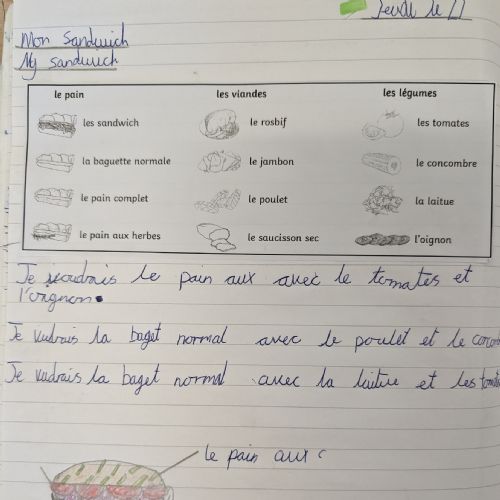 Jeudi le 17
Mon Sandwich
My sandwich
le pain les viandes les légumes
les sandwich le rosbif les tomates
la baguette normale le jambon le concombre
le pain complet le poulet la laitue
le pain aux herbes le saucisson sec l'oignon
Je voudrais le pain aux avec le tomates et
l'oignon.
Je vudrais la baget normal avec le poulet et le
Je vudrais la baget normal avec la laitue et les
le pain aux